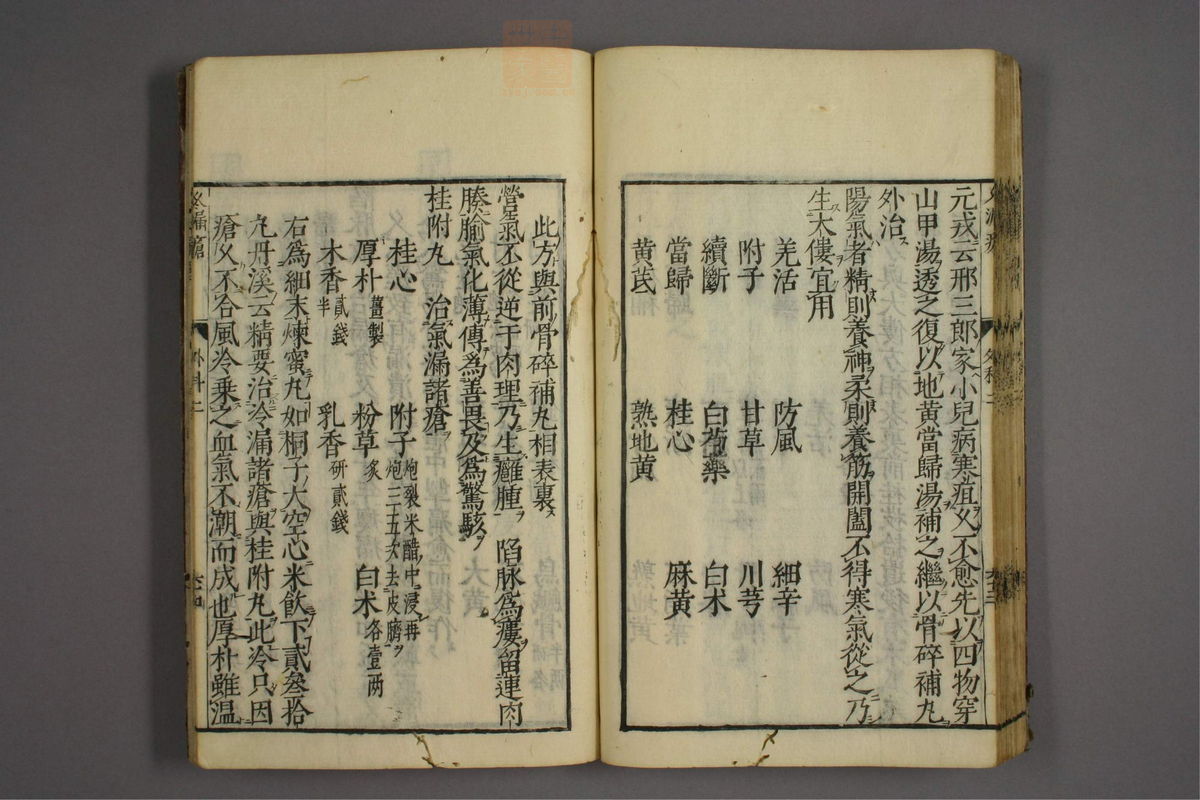 元戎云邢三郎家小兒病寒疽久不愈先以四物穿
山甲湯透之復以地黃當歸湯補之繼以骨碎補丸
外治
陽氣者精則養神柔則養筋開闔不得寒氣從之乃
生大僂宜用
羌活　防風　細辛
附子　甘草　川芎
續斷　白芍藥　白朮
當歸　桂心　麻黃
黃芪　熟地黃
此方與前骨碎補丸相表裏
營氣不從逆于肉理乃生癰腫　陷脉爲瘻留連肉
腠腧氣化薄傳爲善畏及爲驚駭
桂附丸　治氣漏諸瘡
桂心　附子炮裂米醋中浸再炮三五次去皮臍
厚朴薑製　粉草炙　白朮各壹兩
木香貳錢半　乳香研貳錢
右爲細末煉蜜丸如桐子大空心米飲下貳叁拾
丸丹溪云精要治冷漏諸瘡與桂附丸此冷只因
瘡久不合風冷乘之血氣不潮而成也厚朴雖溫
久漏瘡　外科二